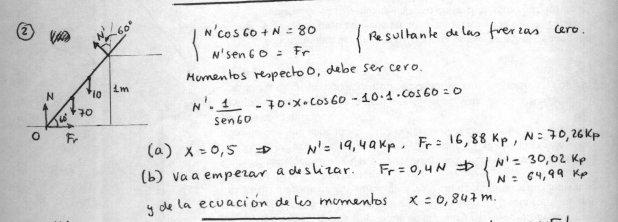 ②
N' 60°
N
10
70
1m
60°
O
Fr
N'cos60 + N = 80
N'sen60 = Fr
Resultante de las fuerzas cero.
Momentos respecto O, debe ser cero.
N' · 1/sen60 - 70·x·cos60 - 10·1·cos60 = 0
(a) x = 0,5 ⇒ N' = 19,49Kp, Fr = 16,88 Kp, N = 70,26Kp
(b) va a empezar a deslizar. Fr = 0,4N ⇒ { N' = 30,02 Kp
N = 64,99 Kp
y de la ecuación de los momentos x = 0,847m.